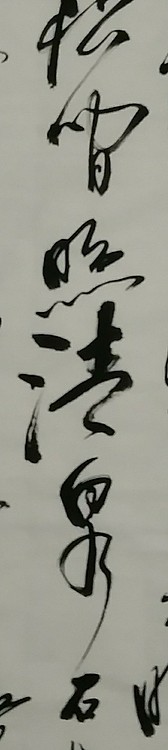 松間照清泉石